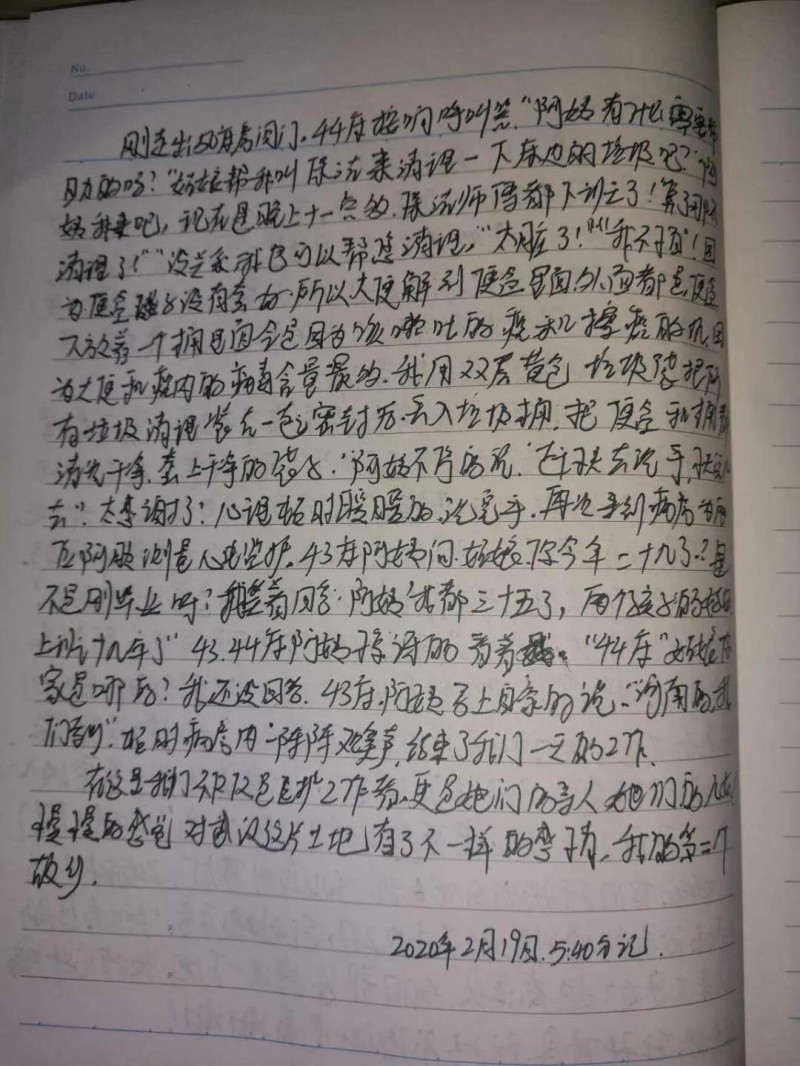 No.
Date
刚走出病房房门，44床按响呼叫器，"阿姨有什么需要帮
助的吗？"姑娘帮我叫保洁来清理一下床边的垃圾吧？"阿
姨我来吧，现在是晚上十一点多，保洁师傅都下班了！算了
清理了！""没关系我可以帮您清理，""太脏了！""我不怕"！因
为便盆袋子没有套好，所以大便解到便盆里面外面都是，便盆
下放着一个桶里面全是因为咳嗽吐的痰和擦痰的纸，因
为大便和痰内的病毒含量最多，我用双层黄色垃圾袋把所
有垃圾清理装在一起密封后丢入垃圾桶，把便盆和桶都
清洗干净，套上干净的袋子，"阿姨不停的说，快去洗手，
去"，太感谢了！心里顿时暖暖的，洗完手，再次来到病房为
阿姨测量心电监护，43床阿姨问，姑娘你今年二十几了？是
不是刚毕业呀？我笑着回答，阿姨我都三十五了，两个孩子的妈
上班十九年了"43.44床阿姨惊讶的看着我。"44床"姑娘你
家是哪的？我还没回答，43床阿姨马上自豪的说，"河南的，我
们"，顿时病房内一阵阵欢笑声，结束了我们一天的工作，
在这里我们不仅仅是医护工作者，更是她们的亲人她们的儿女，
慢慢的感觉对武汉这片土地有了不一样的感情，我的第二个
故乡，
2020年2月19日，5:40分记，